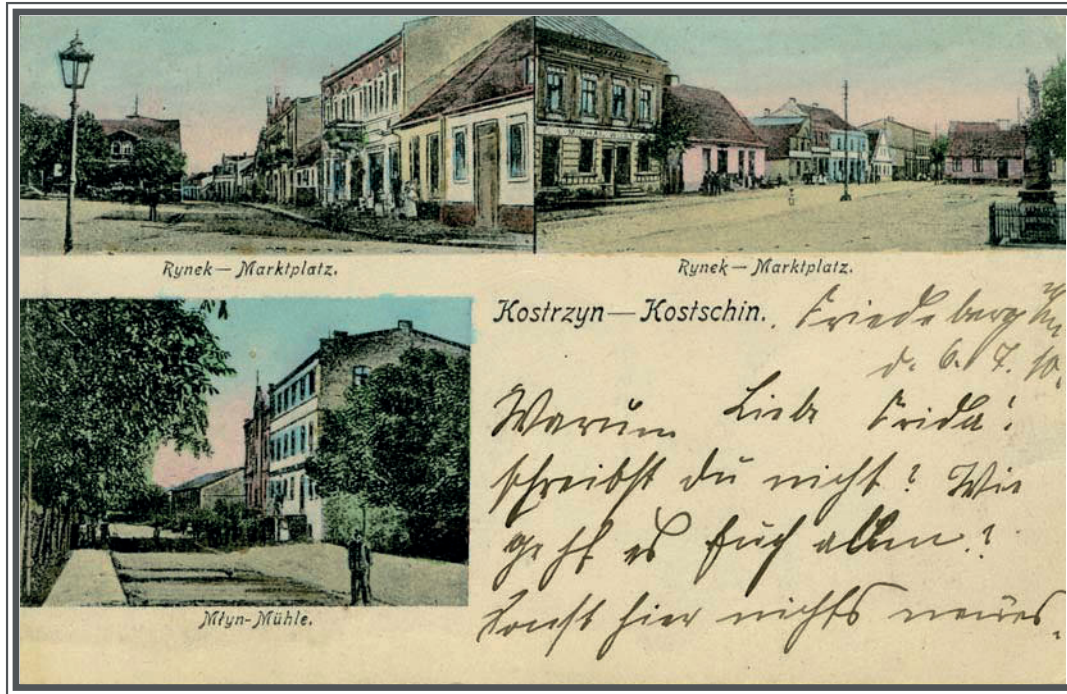 Rynek — Marktplatz.
Rynek — Marktplatz.
Kostrzyn — Kostschin.
Friedeberg
d. 6. 7. 10.
Warum Liebe Frida!
schreibst du nicht? Wie
geht es Euch allen?
Sonst hier nichts neues.
Młyn-Mühle.